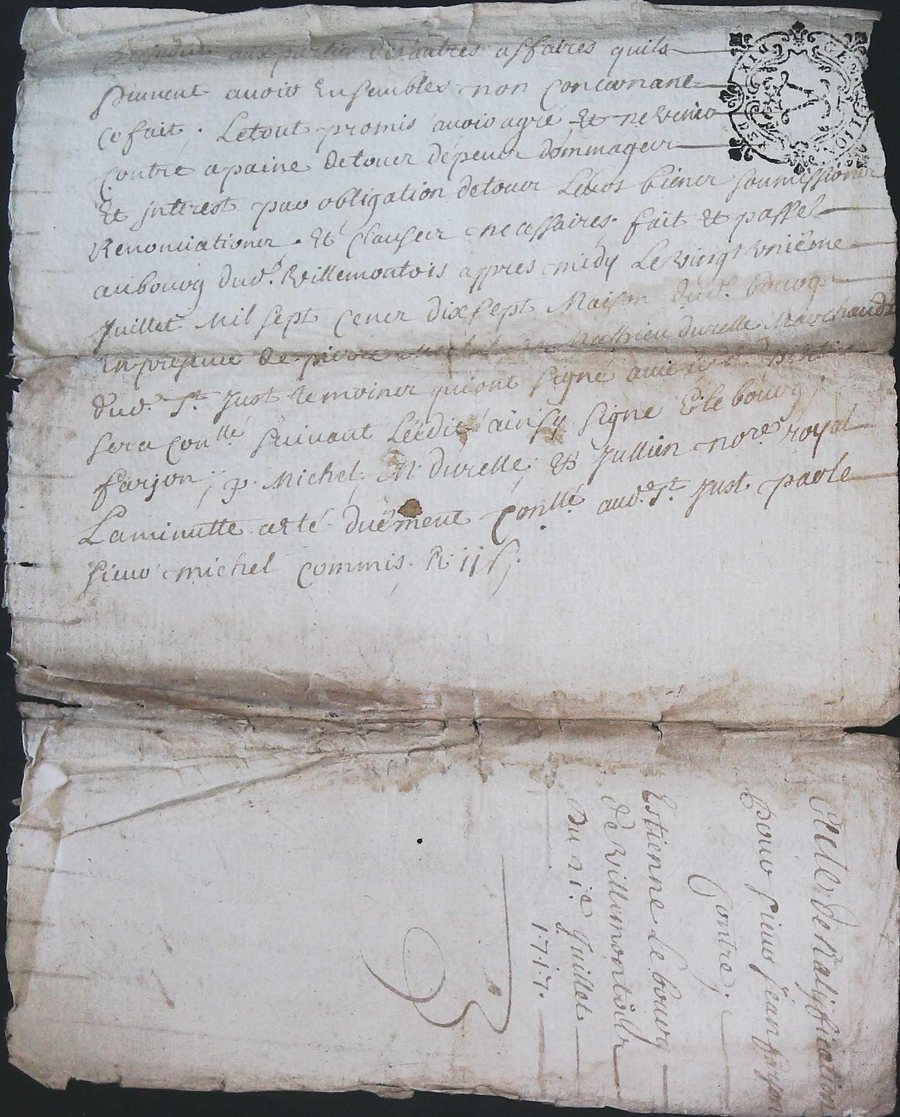 aux parties des autres affaires quils
peuvent avoir Ensembles non Concernant
Ce fait. Le tout promis avoir agré Et ne venir
Contre a paine de touer dépener dommager
Et jnterest par obligation de touer Leurs biener soumissioner
Renonciationer. Et Clauser necessaires. fait Et passé
au bourg dud. Villemontois appres midy Le vingt vniême
Juillet Mil sept Cener dix sept Maison dud. bourg
En presence de pierre Mathieu durelle Marchands
dud. St. Just temoiner qui ont signé avec
sera Conllé suivant Léédit, ainsy signé E. lebourg;
farjon; p. Michel; M. durelle; Et Jullien nore. royal
La minutte a eté duëment Conllé. aud. St. Just par le
sieur michel Commis. R 11 s.
Acte de Ratiffication
Pour sieur Jean farjon
Contre;
Estienne Le bourg
de Villemontois
Du 21e Juillet
1717.